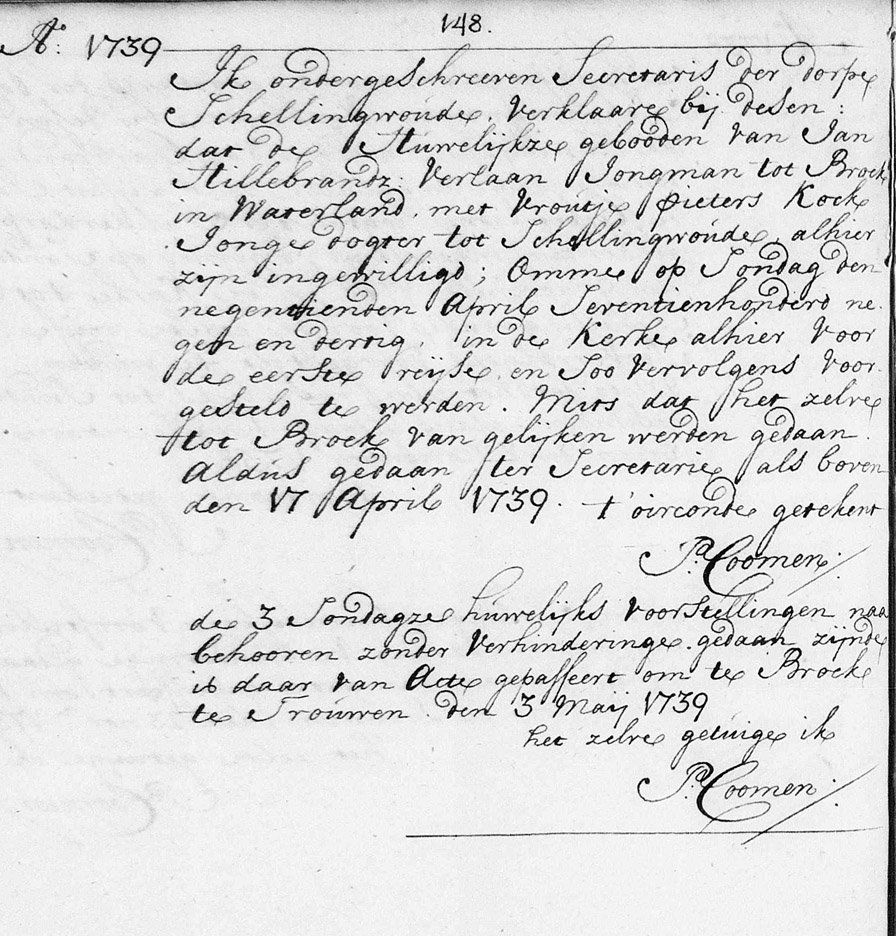 148.
Aº: 1739
Ik ondergeschreeven Secretaris der dorpe
Schellingwoude, Verklaare bij desen:
dat de Huwelijkze gebooden van Jan
Hillebrandz: Verlaan Jongman tot Broek
in Waterland, met Vroutje Pieters Kock
Jonge dogter tot Schellingwoude, alhier
zijn ingewilligd; Omme op Sondag den
negentienden April Seventienhonderd ne.
gen en dertig, in de Kerke alhier voor
de eerste reijse, en Soo Vervolgens voor.
gesteld te werden. Mits dat het zelve
tot Broek van gelijken werden gedaan.
Aldus gedaan ter Secretarie, als boven
den 17 April 1739. t'oirconde getekent
Pr. Coomen:
de 3 Sondagze huwelijks voorstellingen naa
behooren zonder Verhinderinge gedaan zijnde
is daar van Acte gepasseert om te Broek
te Trouwen. den 3 Maij 1739
het zelve getuige ik
Pr. Coomen: